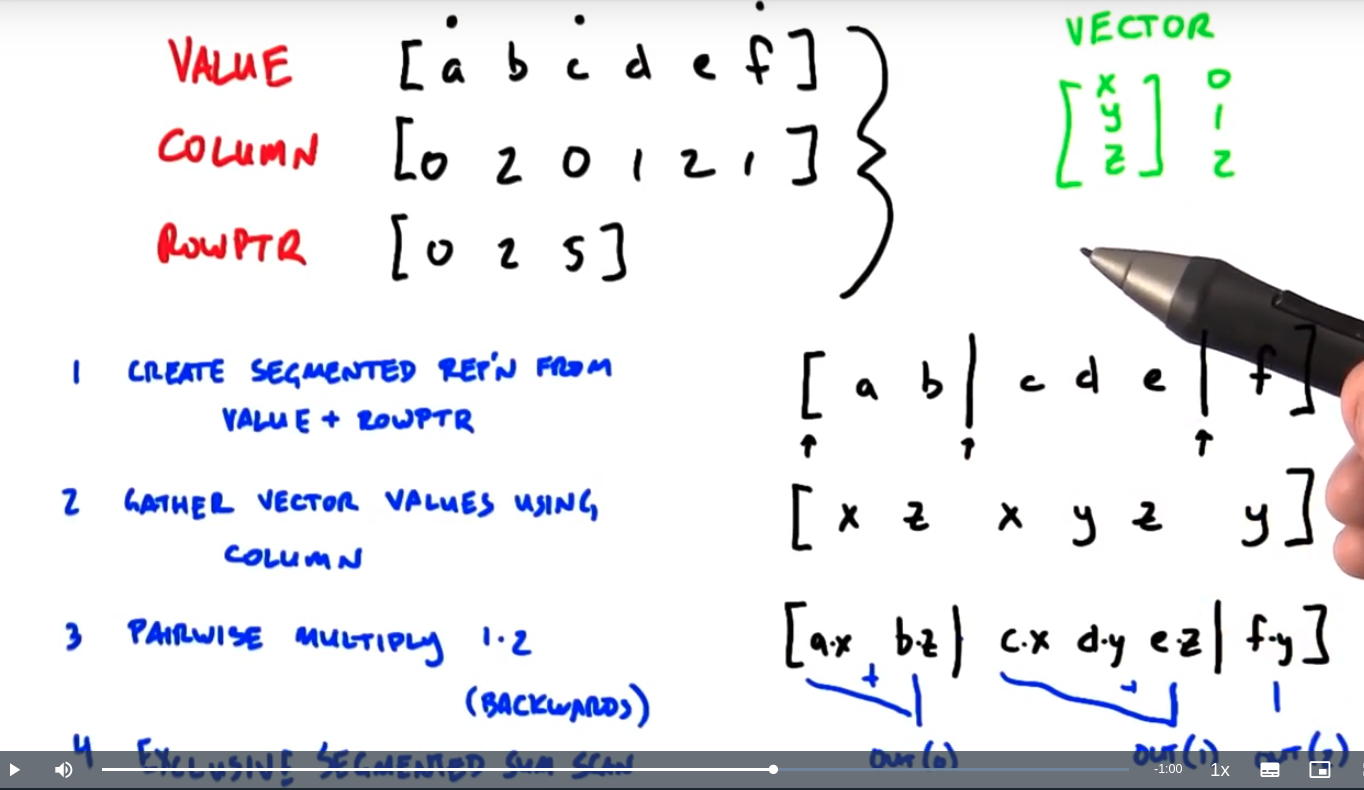 VALUE [ a b c d e f ]
COLUMN [ 0 2 0 1 2 1 ]
ROWPTR [ 0 2 5 ]
VECTOR
[ x ] 0
[ y ] 1
[ z ] 2
1 CREATE SEGMENTED REP'N FROM
VALUE + ROWPTR
[ a b | c d e | f ]
2 GATHER VECTOR VALUES USING
COLUMN
[ x z x y z y ]
3 PAIRWISE MULTIPLY 1·2
[ a·x b·z | c·x d·y e·z | f·y ]
+ +
(BACKWARDS)
4 EXCLUSIVE SEGMENTED SUM SCAN
OUT(0) OUT(1) OUT(2)
-1:00 1x